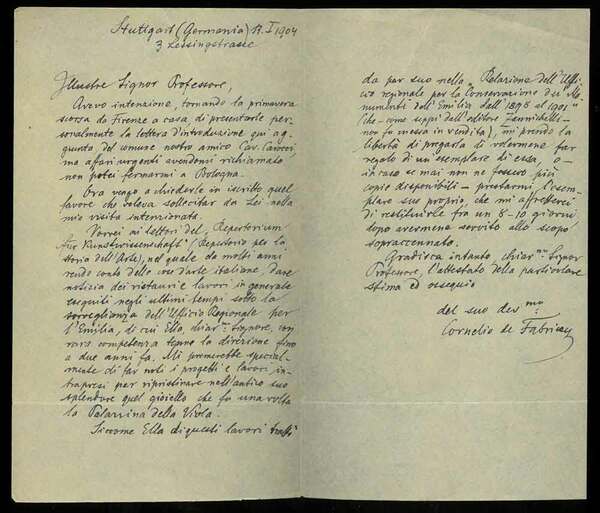 Stuttgart (Germania) 17. I 1904
3 Lessingstrasse
Illustre Signor Professore,
Avevo intenzione, tornando la primavera
scorsa da Firenze a casa, di presentarle per-
sonalmente la lettera d'introduzione qui ag-
giunta del comune nostro amico Cav. Carocci
ma affari urgenti avendomi richiamato
non potei fermarmi a Bologna.
Ora vengo a chiederle in iscritto quel
favore che voleva sollecitar da Lei nella
mia visita intenzionata.
Vorrei ai lettori del „Repertorium
für Kunstwissenschaft" (Repertorio per la
storia dell'Arte), nel quale da molti anni
rendo conto delle cose d'arte italiane, dare
notizia dei ristauri e lavori in generale
eseguiti negli ultimi tempi sotto la
sorveglianza dell'Ufficio Regionale per
l'Emilia, di cui Ella chiar.mo Signore, con
rara competenza tenne la direzione fino
a due anni fa. Mi premerebbe special-
mente di far noti i progetti e lavori in-
trapresi per ripristinare nell'antico suo
splendore quel gioiello che fu una volta
la Palazzina della Viola.
Siccome Ella di questi lavori trattò
da par suo nella „Relazione dell'Uffi-
cio regionale per la Conservazione dei Mo-
numenti dell'Emilia dall' 1898 al 1901"
(che – come seppi dall'editore Zannichelli –
non fu messa in vendita), mi prendo la
libertà di pregarla di volermene far
regalo di un esemplare di essa, o –
in caso se mai non ne fossero più
copie disponibili – prestarmi, l'esem-
plare suo proprio, che mi affretterei
di restituirle fra un 8–10 giorni,
dopo avermene servito allo scopo
sopraccennato.
Gradisca intanto, chiar.mo Signor
Professore, l'attestato della particolare
stima ed ossequio
del suo dev.mo
Cornelio de Fabriczy